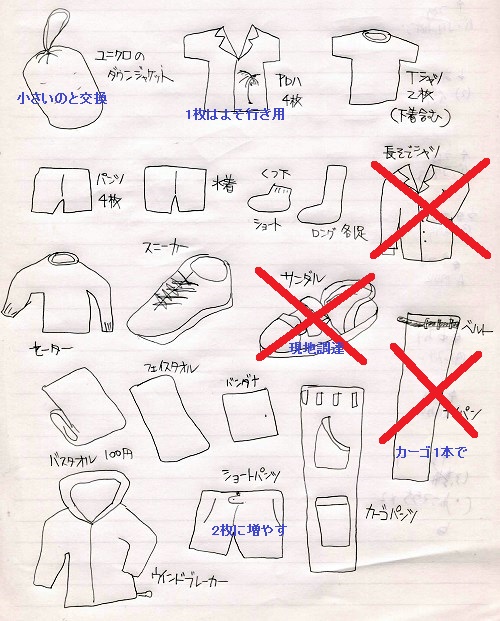 ユニクロの
ダウンジャケット
小さいのと交換
アロハ
4枚
1枚はよそ行き用
Tシャツ
2枚
(下着含む)
パンツ
4枚
水着
くつ下
ショート
ロング 各2足
長そでシャツ
セーター
スニーカー
サンダル
現地調達
ベルト
カーゴ1本で
バスタオル 100円
フェイスタオル
バンダナ
カーゴパンツ
ウインドブレーカー
ショートパンツ
2枚に増やす